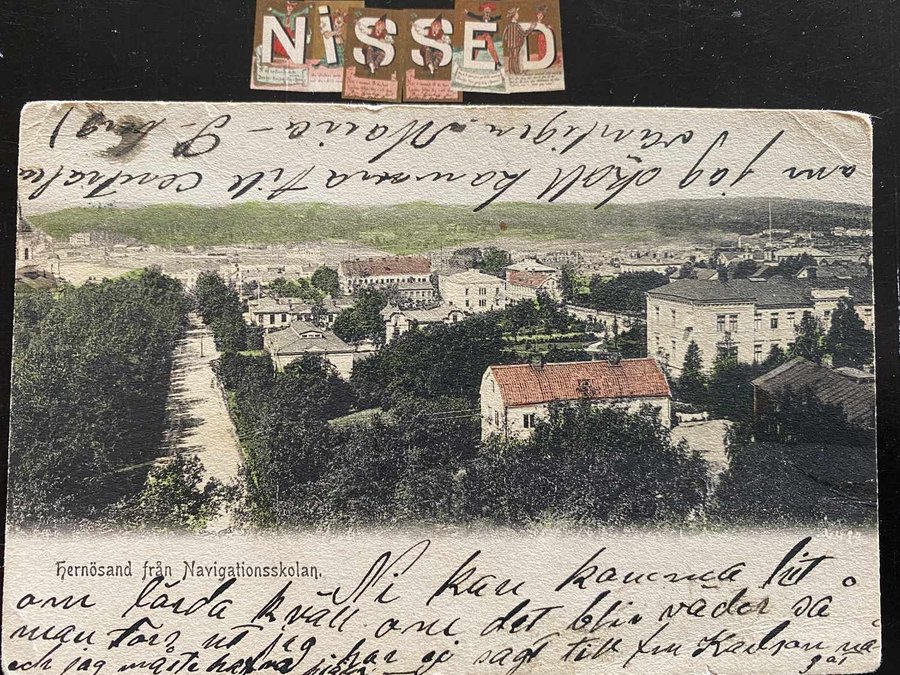 NiSSED
om jag skall komma till centrala
vänligen Maria
Hernösand från Navigationsskolan.
Ni kan komma hit
om lörda kväll om det blir väder så
man törs ut jag har ej sagt till fru Karlson nå
got
och jag måste